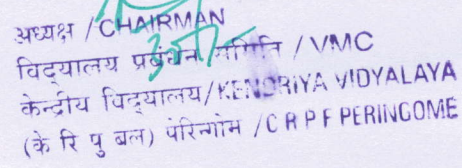 अध्यक्ष / CHAIRMAN
विद्यालय प्रबंधन समिति / VMC
केन्द्रीय विद्यालय/KENDRIYA VIDYALAYA
(के रि पु बल) पेरिन्गोम / C R P F PERINGOME